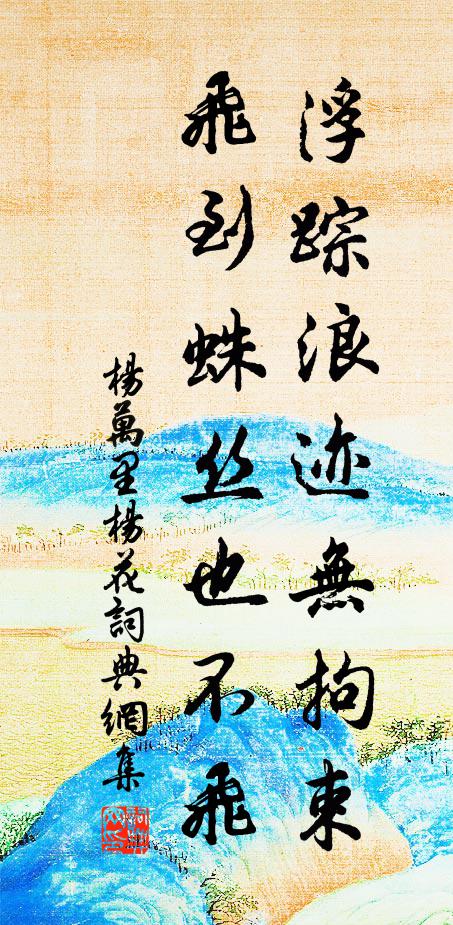 浮踪浪迹無拘束
飛到蛛丝也不飛
楊萬里楊花詞典網集